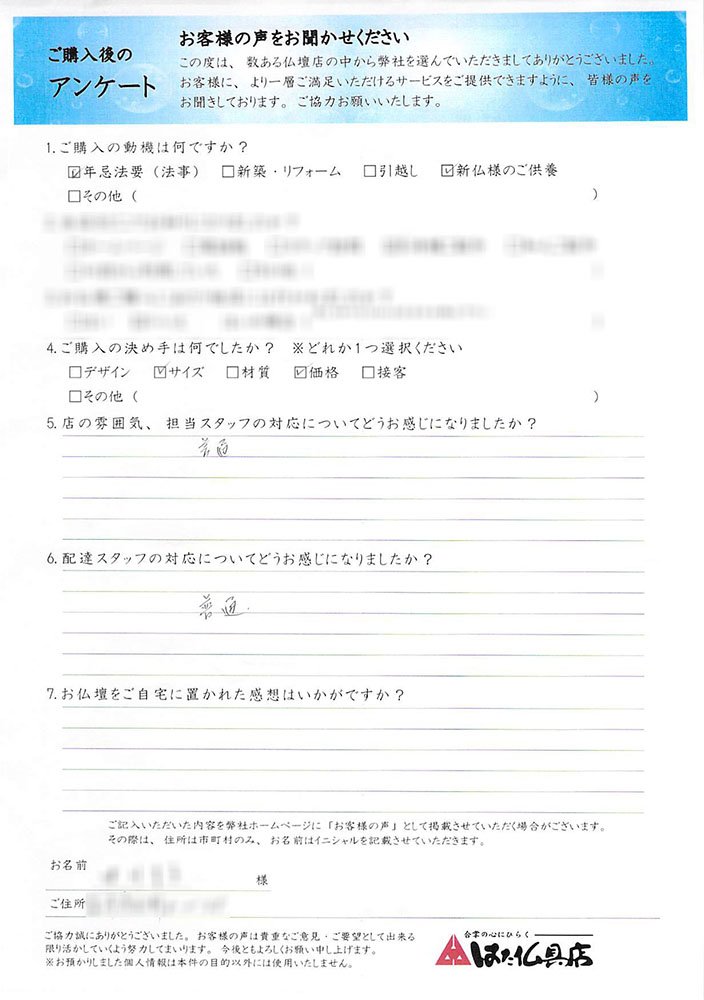 ご購入後の
アンケート
お客様の声をお聞かせください
この度は、数ある仏壇店の中から弊社を選んでいただきましてありがとうございました。
お客様に、より一層ご満足いただけるサービスをご提供できますように、皆様の声を
お聞きしております。ご協力お願いいたします。
1.ご購入の動機は何ですか？
☑年忌法要（法事） □新築・リフォーム □引越し ☑新仏様のご供養
□その他（ ）
4.ご購入の決め手は何でしたか？ ※どれか1つ選択ください
□デザイン ☑サイズ □材質 ☑価格 □接客
□その他（ ）
5.店の雰囲気、担当スタッフの対応についてどうお感じになりましたか？
普通
6.配達スタッフの対応についてどうお感じになりましたか？
普通.
7.お仏壇をご自宅に置かれた感想はいかがですか？
ご記入いただいた内容を弊社ホームページに「お客様の声」として掲載させていただく場合がございます。
その際は、住所は市町村のみ、お名前はイニシャルを記載させていただきます。
お名前 様
ご住所
ご協力誠にありがとうございました。お客様の声は貴重なご意見・ご要望として出来る
限り活かしていくよう努力してまいります。今後ともよろしくお願い申し上げます。
※お預かりしました個人情報は本件の目的以外には使用いたしません。
合掌の心にひらく
はた仏具店